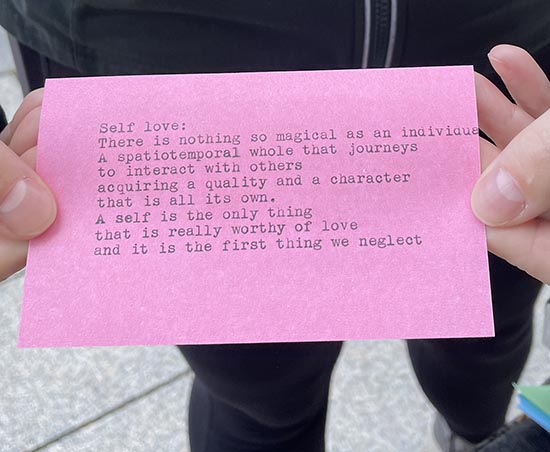 Self love:
There is nothing so magical as an individua
A spatiotemporal whole that journeys
to interact with others
acquiring a quality and a character
that is all its own.
A self is the only thing
that is really worthy of love
and it is the first thing we neglect